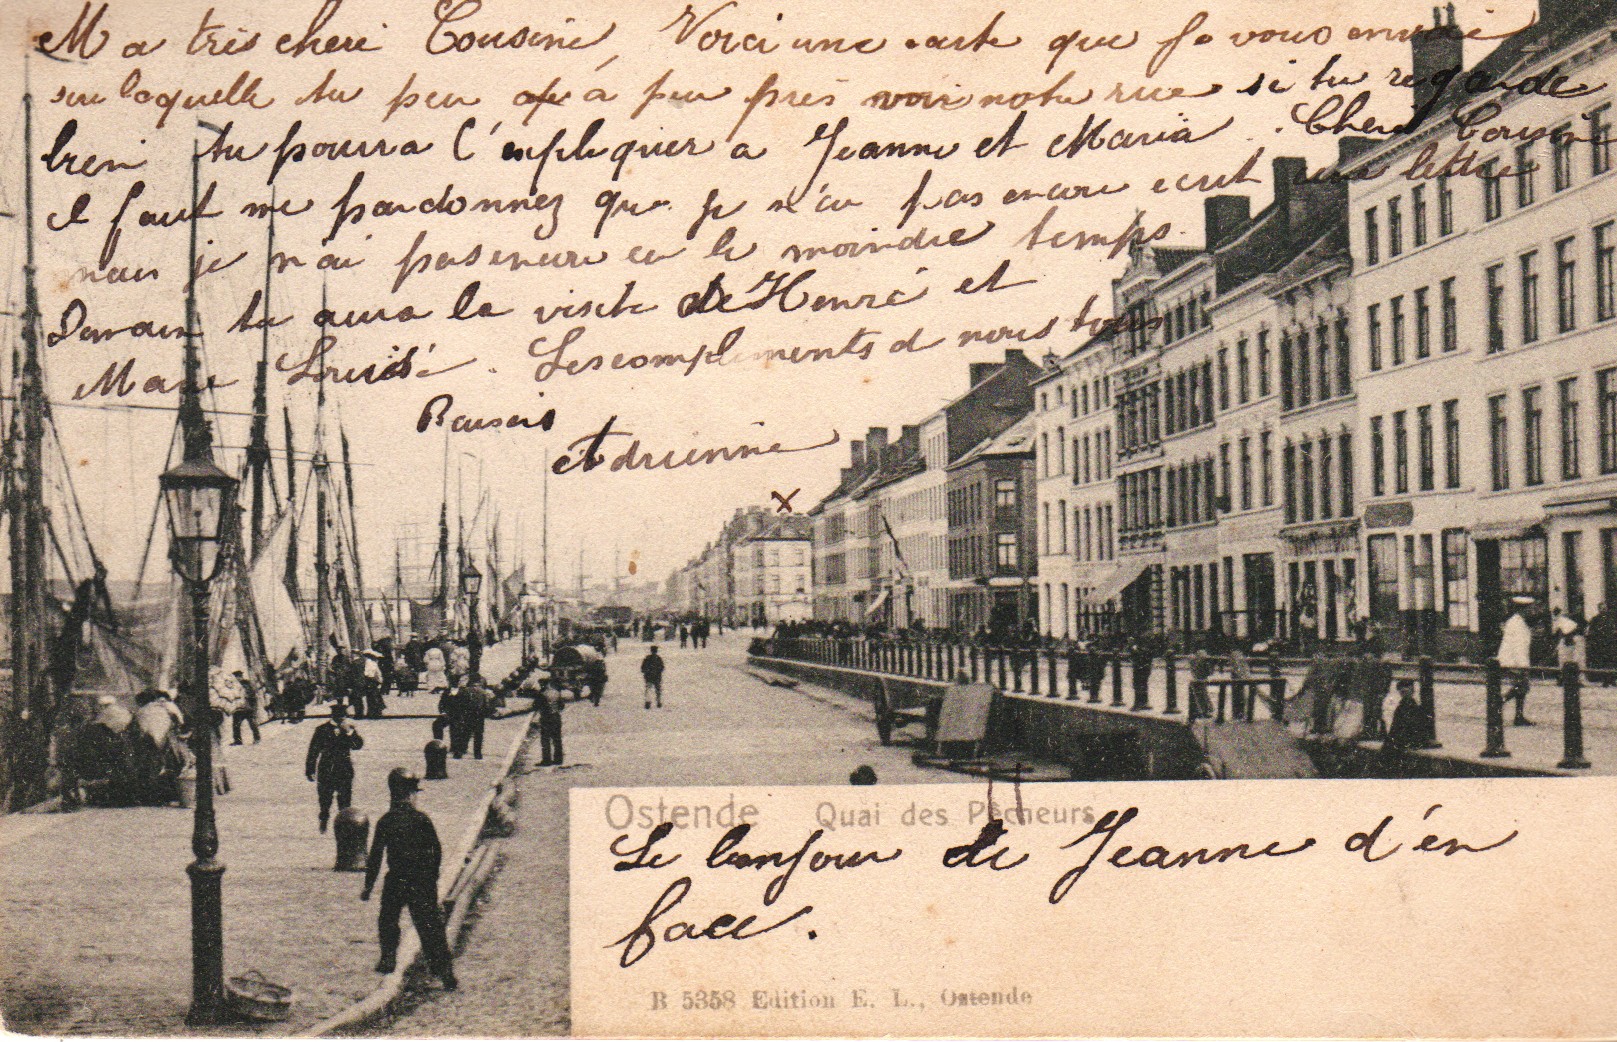 Ma tres cheri Cousine, Voici une carte que je vous envoie
sur laquelle tu peu à peu près voir notre rue si tu regarde
bien tu poura l'expliquer a Jeanne et Maria. Cheri Cousine
il faut me pardonnez que je n'ai pas encore ecrit une lettre
mais je n'ai pas encore eu le moindre temps.
Demain tu aura la visite de Henri et
Marie Louise. Les compliments d nous tous
Baisers
Adrienne
x
Ostende Quai des Pêcheurs
Le bonjour de Jeanne d'en
face.
B 5358 Edition E. L., Ostende